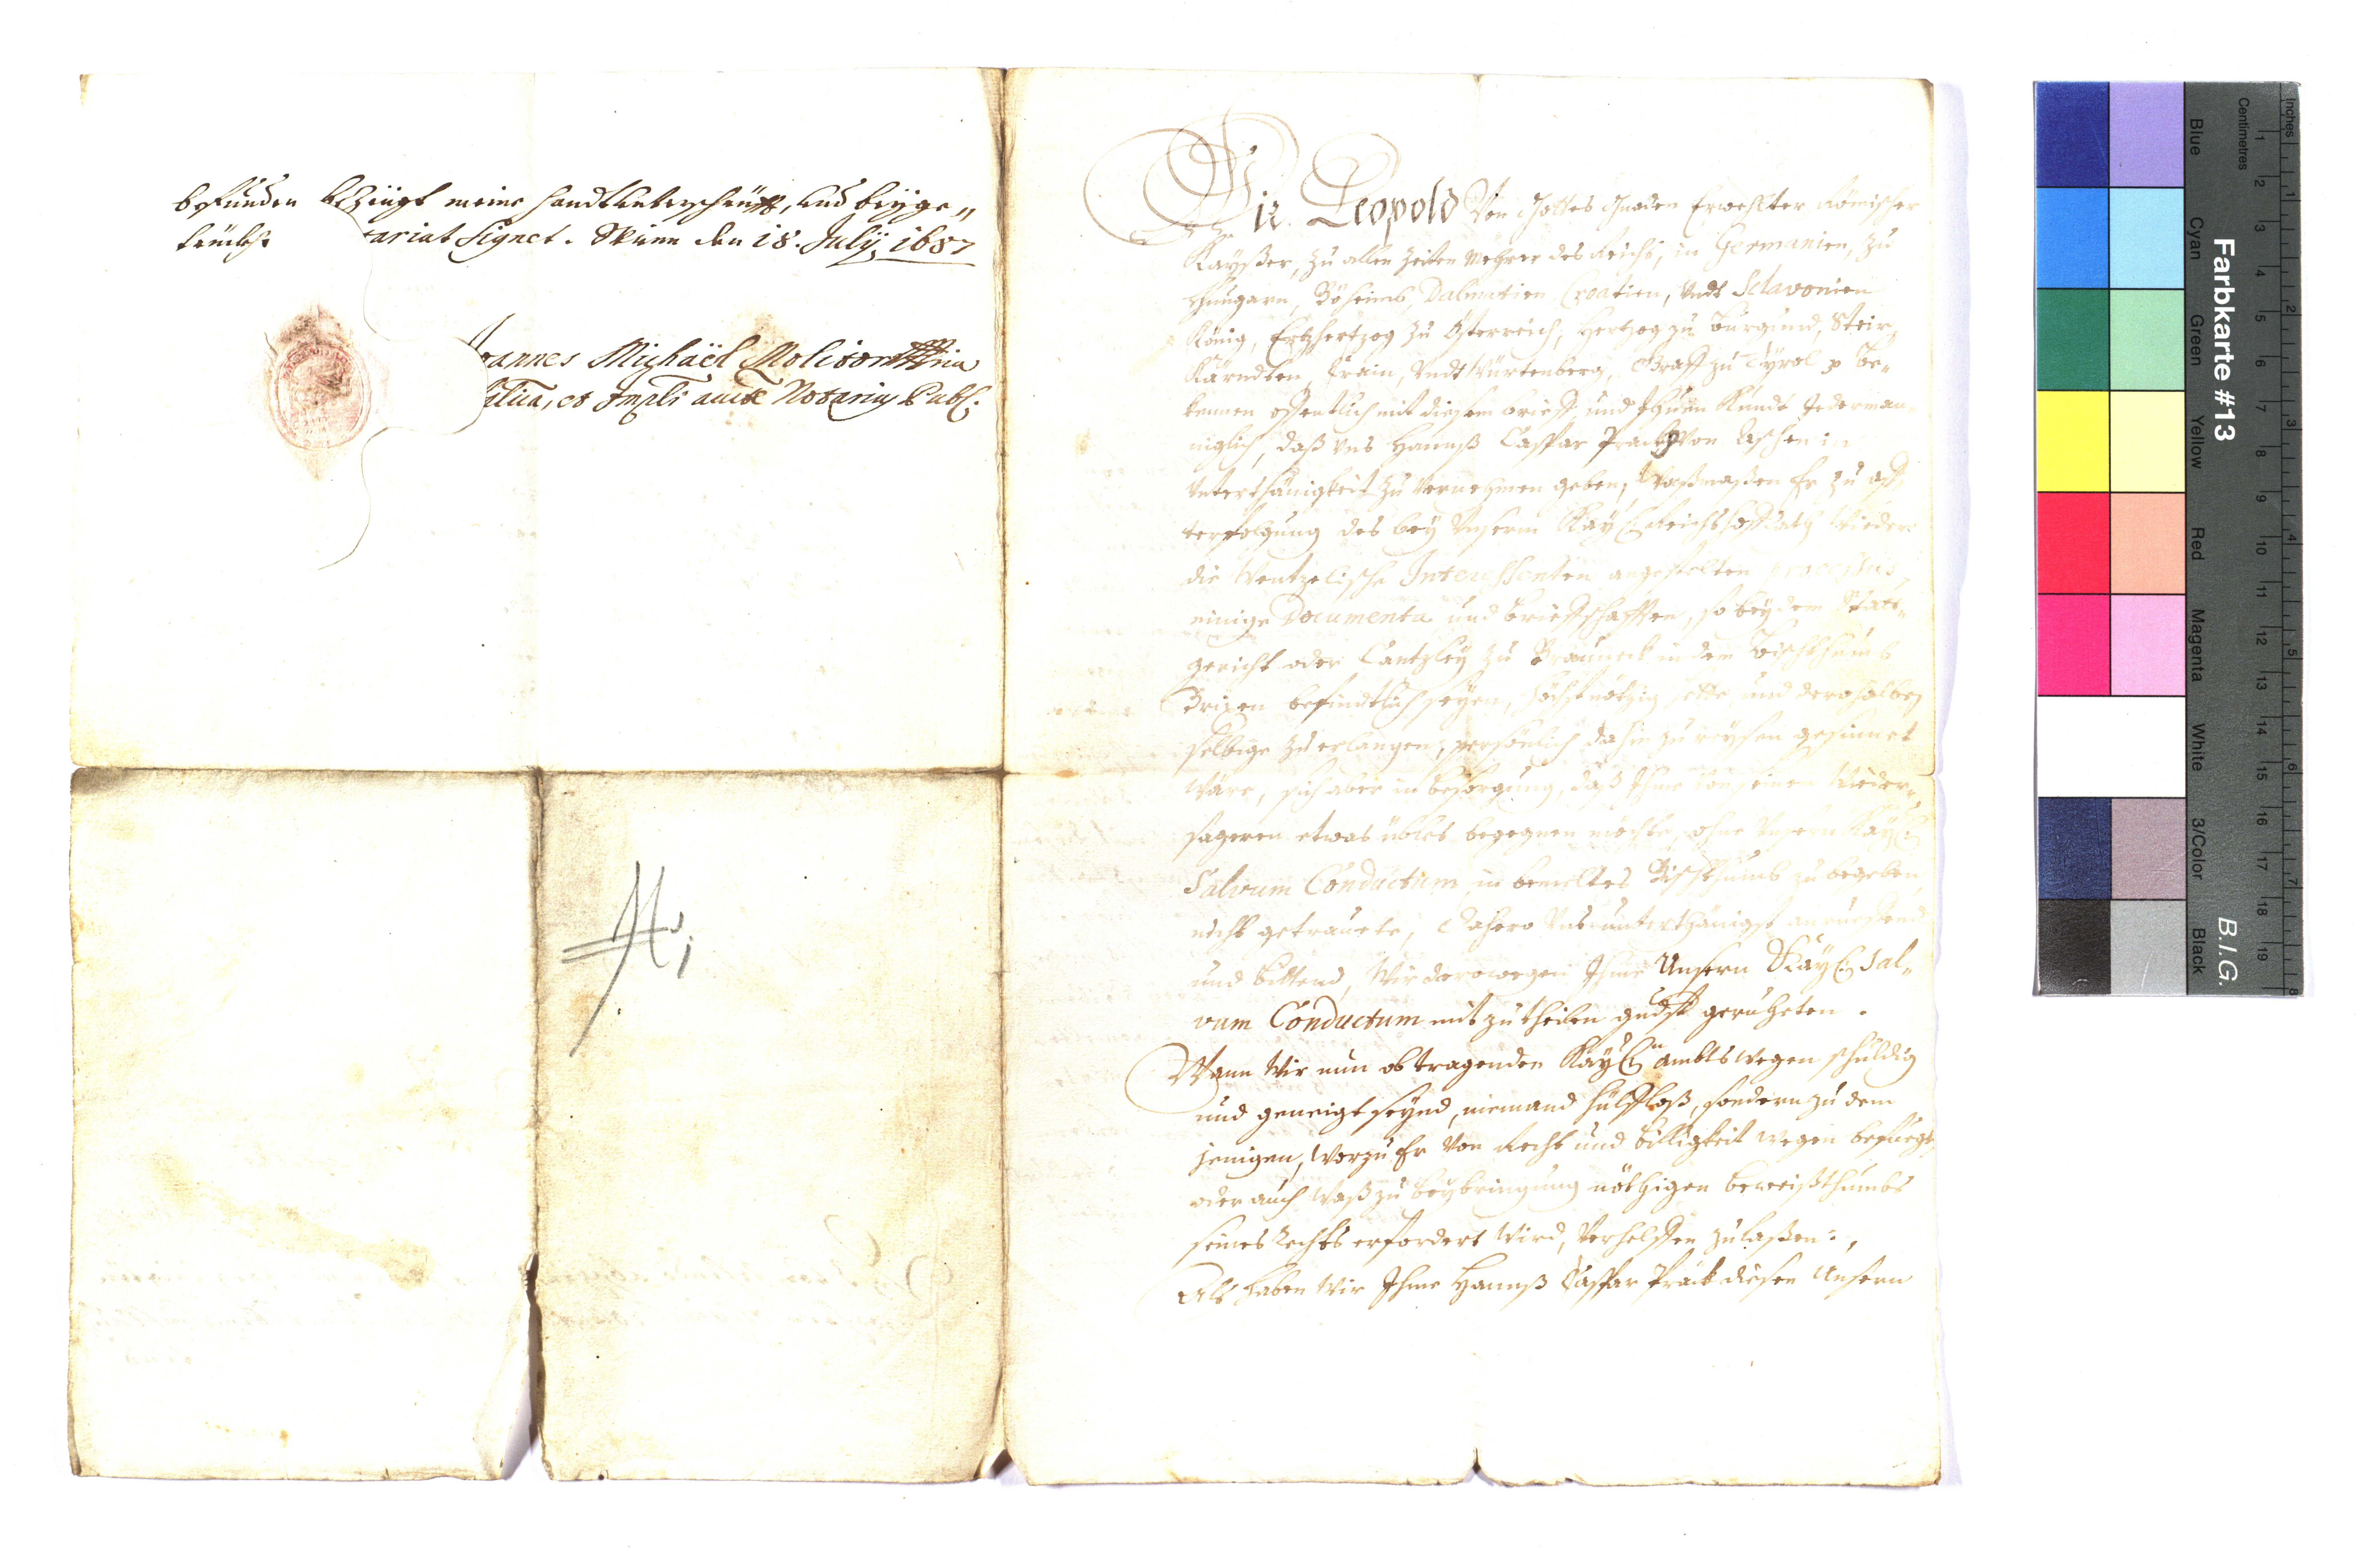 befunden bezeügt meine handtunterschrüfft, und beyge„
truckht tariat Signet. Actum den 18. Julÿ 1687
oannes Michaël Molitor
et Impli aucte Notarius Publ:
Wir Leopold Von Gottes Gnaden Erwehlter Römischer
Kayßer, zu allen Zeiten Mehrer des Reichs, in Germanien, zu
Hungarn, Böheimb, Dalmatien Croatien, Vndt Sclavonien
König, Ertzhertzog zu Österreich, Hertzog zu Burgund, Steir,
Kärndten, Crain, Vndt Würtenberg, Graff zu Tyrol p be„
kennen offentlich mit diesem brieff und thuen Kundt Jederman„
niglich, daß Vns Hannß Caspar Prackh Von Aschen in
Vnterthänigkeit zu Vernehmen geben, Waßmaßen Er zu
terfolgung des bey Vnserm Kay: Reichshoffrath wieder
die Wentzelische Interessenten angestelten Processus,
einige Documenta und brieffschafften, so bey dem Statt„
gericht oder Cantzley zu Brauneck in dem Bischthumb
Brixen befindtlich seyen, höchst nöthig hette und derohalben
selbige zu erlangen, persönlich dahin zu reysen gesinnet
wäre, sich aber in besorgung, daß Ihme von seinen Wieder„
sageren etwas übles begegnen möchte, ohne Vnsern Kay:
Salvum Conductum in bemeltes Bischthumb zu begeben
nicht getrauete, Dahero Vns unterthänigst anrueffend
und bittend, Wir derowegen Ihme Unsern Kay: Sal„
vum Conductum mit zutheilen gndst geruheten.
Wann Wir nun ob tragenden Kay: ambts wegen schuldig
und geneigt seynd, niemand hülffloß, sondern zu dem
jenigen, Worzu Er Von Recht und billigkeit wegen befuegt,
oder auch Waß zu beybringung nöthigen beweißthumbs
seines Rechts erfordert wird, Verhelffen zulaßen;
Alß haben Wir Ihme Hannß Caspar Prack diesen Unsern
Farbkarte #13
B.I.G.
Inches
Centimetres
Blue
Cyan
Green
Yellow
Red
Magenta
White
3/Color
Black